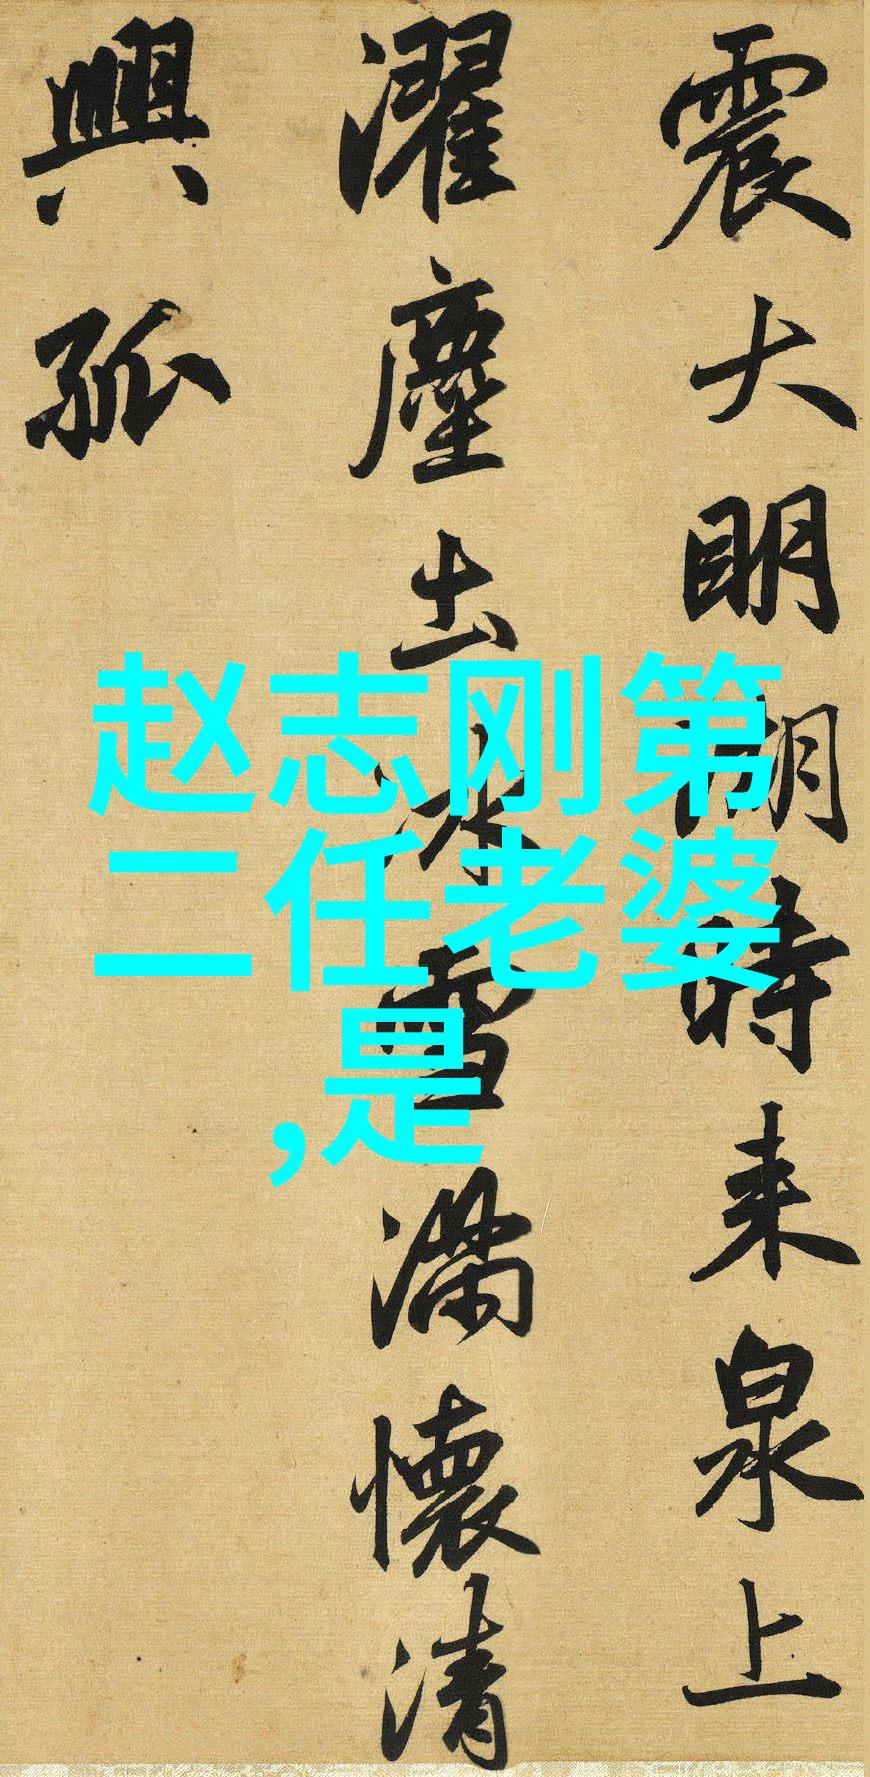 震大明湖時来泉上
濯塵出冰雪滿懷清
興孤
赵志刚第
二任老婆
,是